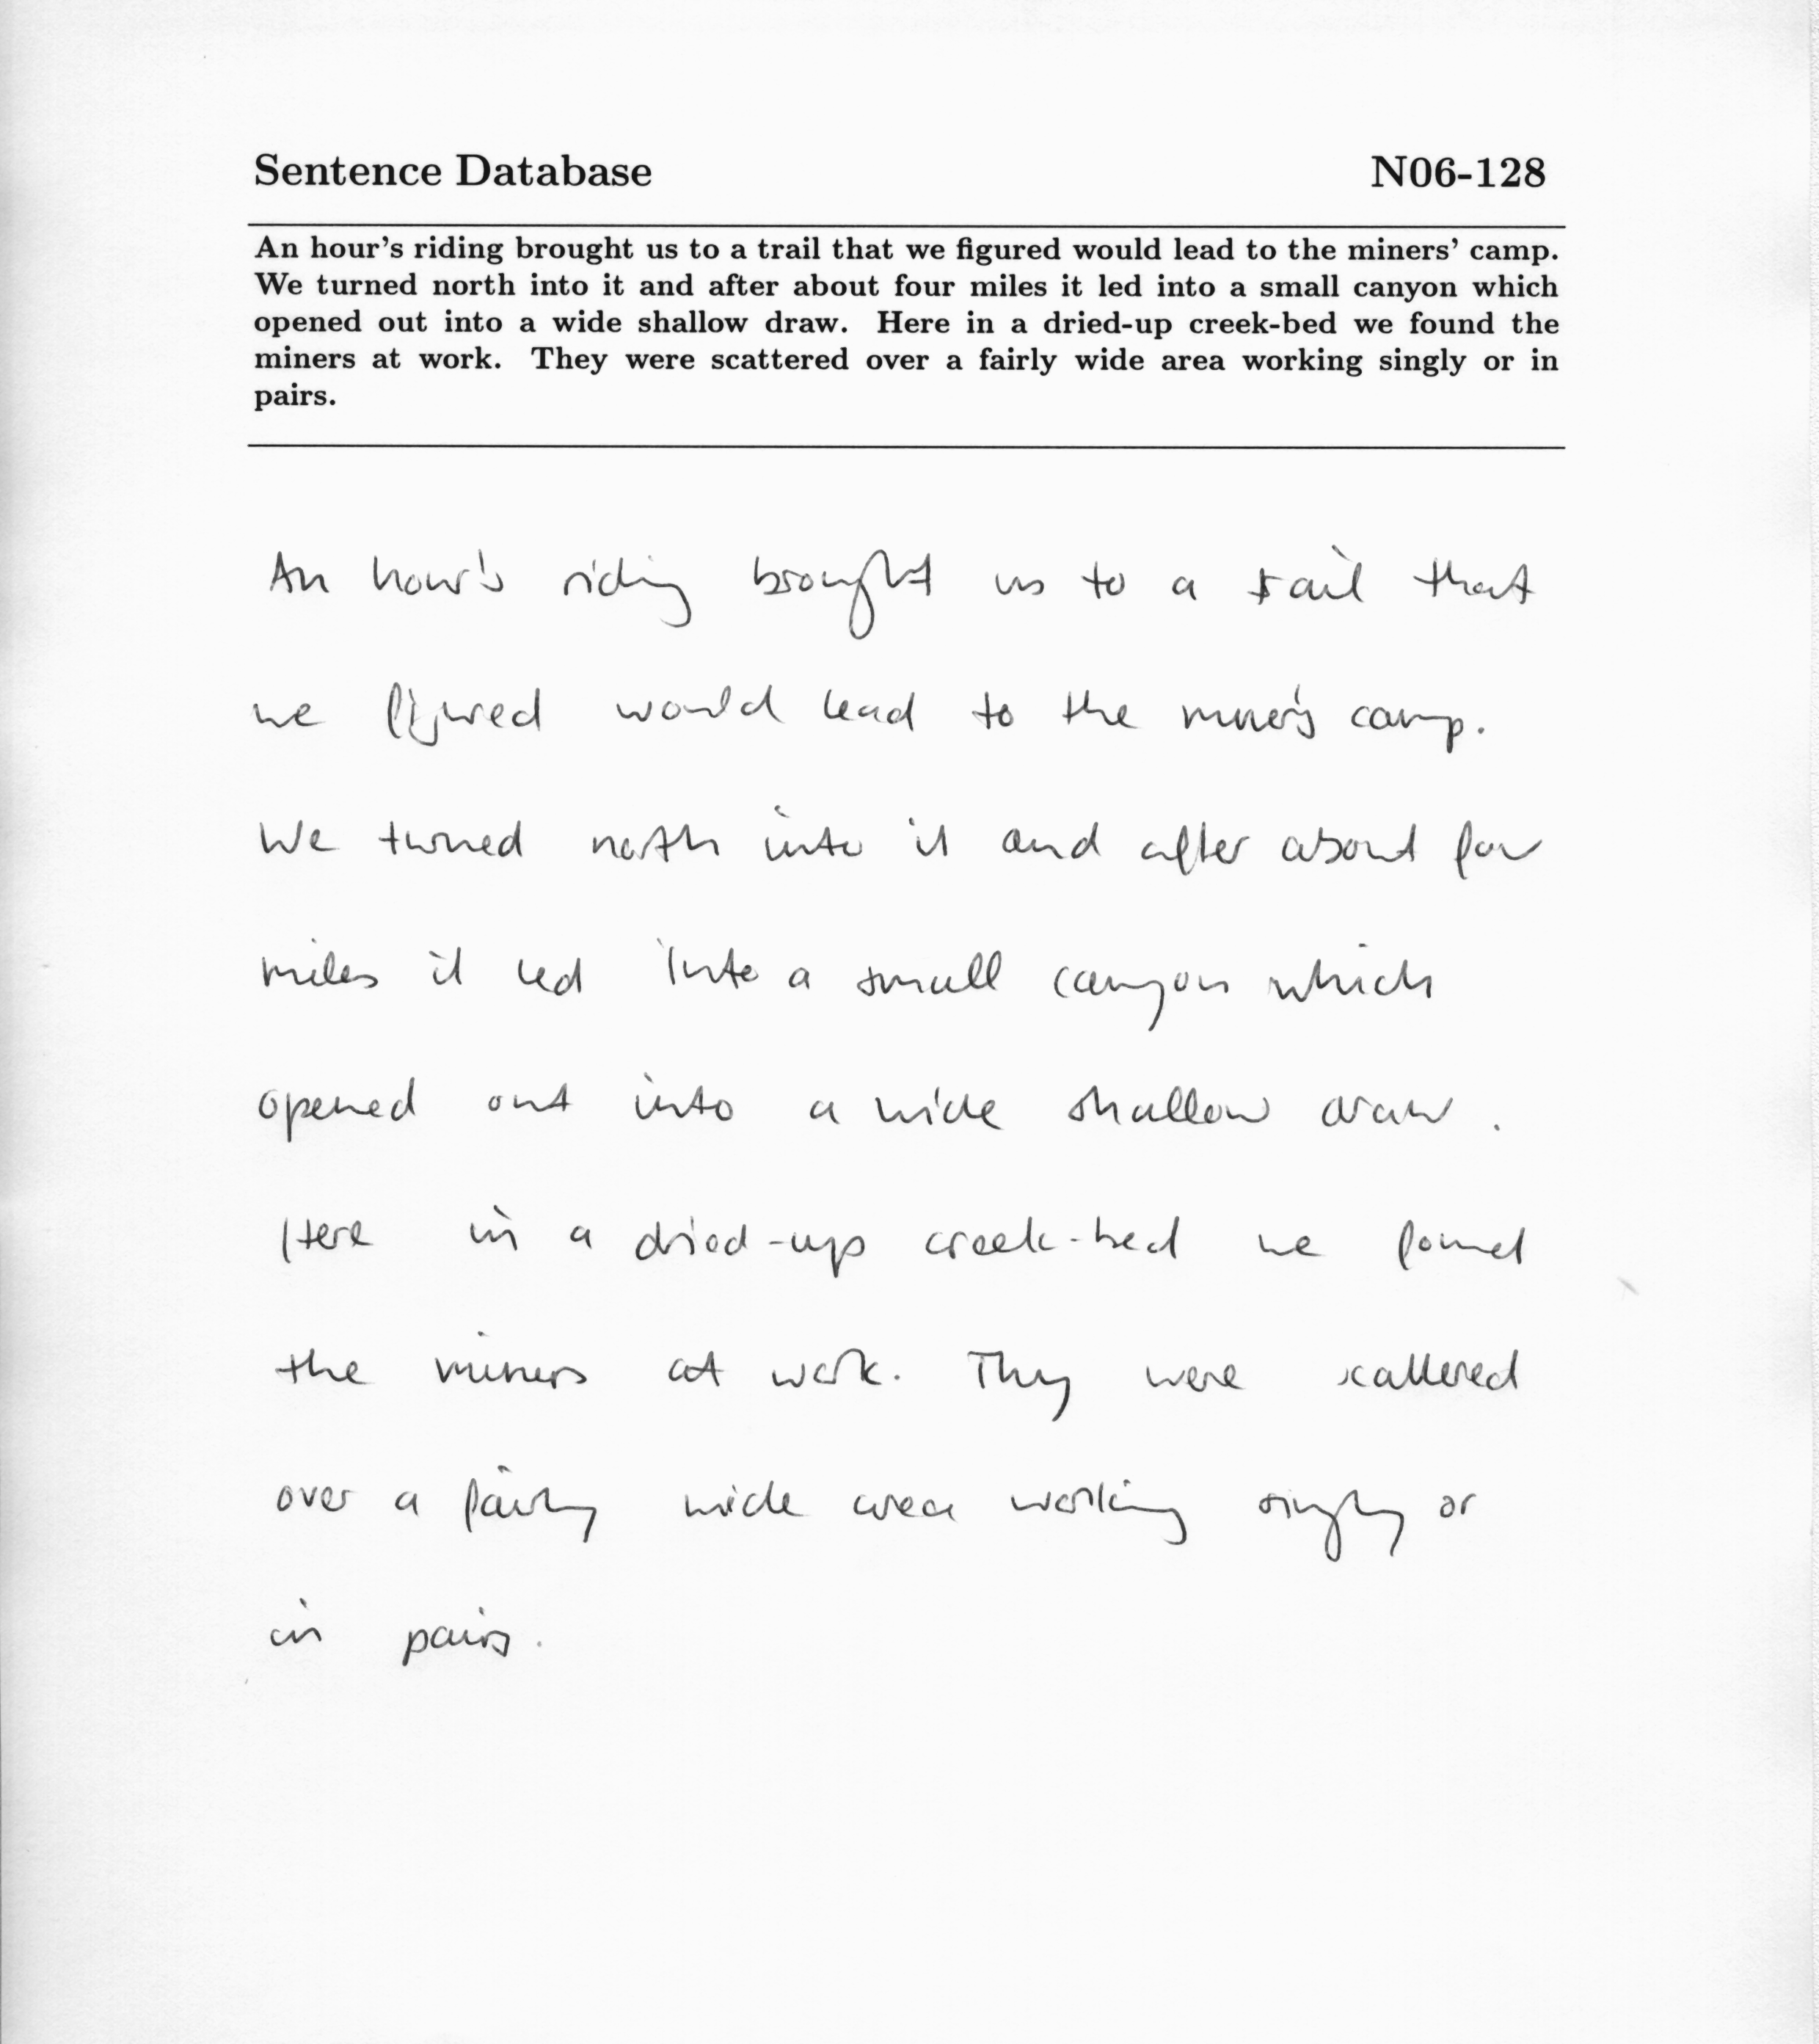 Sentence Database N06-128
An hour's riding brought us to a trail that we figured would lead to the miners' camp.
We turned north into it and after about four miles it led into a small canyon which
opened out into a wide shallow draw. Here in a dried-up creek-bed we found the
miners at work. They were scattered over a fairly wide area working singly or in
pairs.
An hour's riding brought us to a trail that
we figured would lead to the miner's camp.
We turned north into it and after about four
miles it led into a small canyon which
opened out into a wide shallow draw.
Here in a dried-up creek-bed we found
the miners at work. They were scattered
over a fairly wide area working singly or
in pairs.